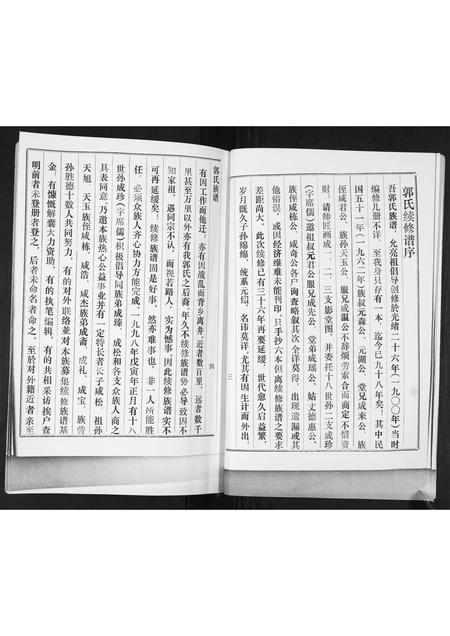 郭氏续修谱序
吾郭氏族谱，允亮祖倡导创修於光绪二十六年（一九〇〇年）当时
编修几册不详，至我身只存有一本，迄今已九十八年矣；其中民
国五十一年（一九六二年）族叔元森公、元湖公、堂兄成来公、族
侄咸君公、族孙天玉公、服兄成温公不辞烦劳索合而商定不惜资
财，请师匠画成一、二、三支影堂图，并委托十八世孙二支成珍
（字席儒）邀祖叔元君公服兄成先公、堂弟成瑶公、姑丈德惠公、
族侄咸栋公、咸奇公各户询查略叙其次，全详莫得，出现遗漏或其
他错误，或因经济维难未能刊印，只手抄六本但离续修族谱之要求
差距尚大，此次续修已有三十六年再要延缓，世代愈久启益繁，
岁月既久子孙绵绵，统系元綹，名讳莫详，尤其有因生计而外出，
三
郭氏族谱
四
有因工作而他迁，亦有因战乱而背乡离井，近者数百里，远者数千
里甚至万里以外亦有我郭氏之后裔，年久不续修族谱势必导致因不
知家祖，遇同宗不认，而视若路人，实为憾事，因此续修族谱实不
可再延缓矣，续修族谱固是好事，然亦难事也，非一人所能胜
任，必须众族人齐心协力方能完成，一九九八年戊寅年正月有十八
世孙成珍（字席儒）积极倡导同族弟成臻、成松和各支众族人商之
具表同意，乃邀本族热心公益事业并有一定特长者长子咸松、祖孙
天旭、天玉族侄咸栋、咸浩、咸杰族弟成斋、成礼、成宝、族曾
孙胜德十数人共同努力，有的对外联络並对本族募集续修族谱基
金，有慷慨解囊大力资助，有的执笔编辑，有的共相采访挨户查
明前者未登册者登之，后者未命名者命之，至於对外籍近者亲至